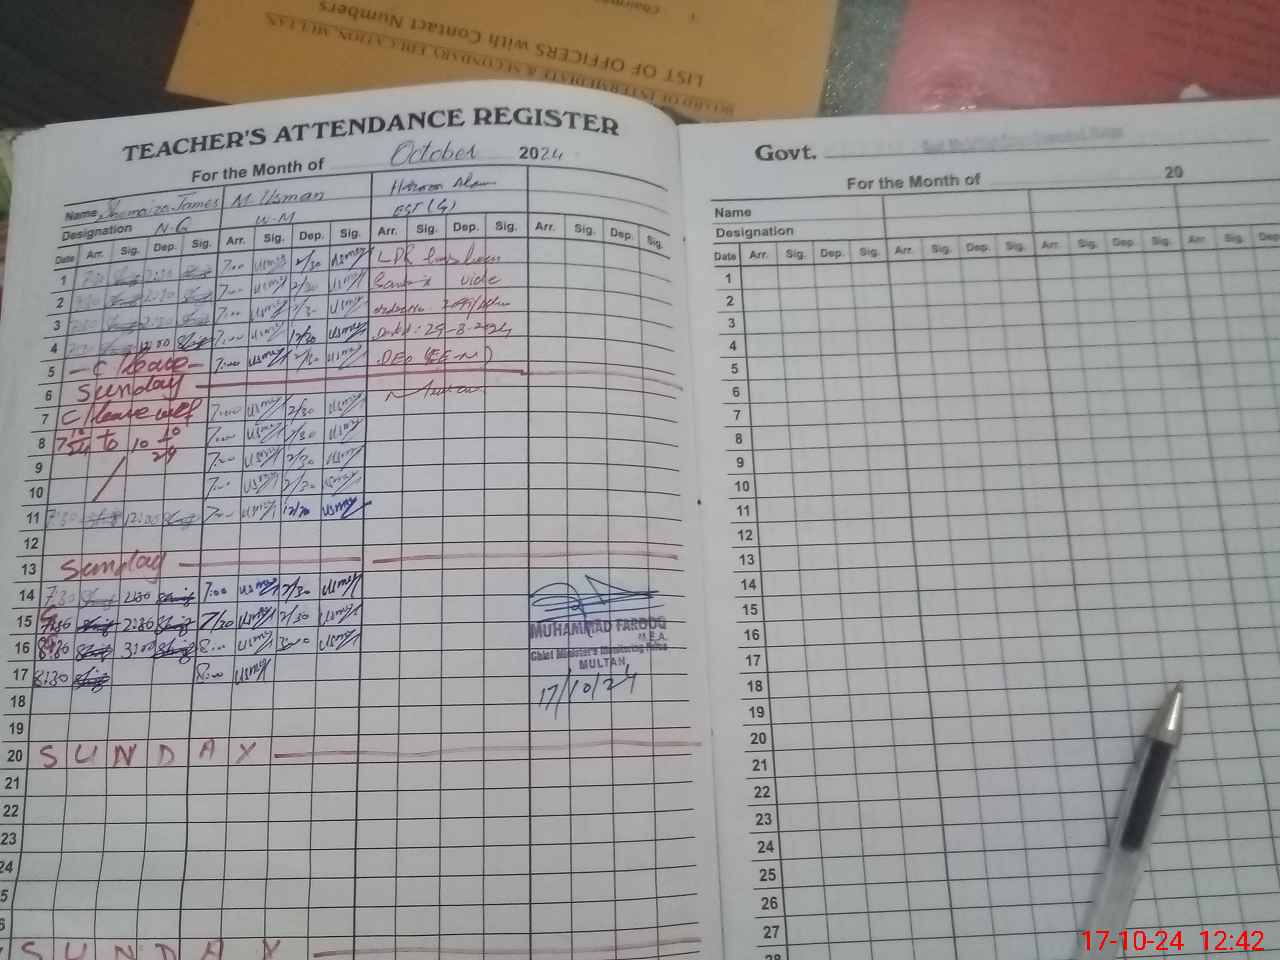 Chairman
LIST OF OFFICERS with Contact Numbers
BOARD OF INTERMEDIATE & SECONDARY EDUCATION, MULTAN
TEACHER'S ATTENDANCE REGISTER
For the Month of October 2024
Name Shemaiza James M. Usman
Designation N-Q W-M EST (S)
Date Arr. Sig. Dep. Sig. Arr. Sig. Dep. Sig. Arr. Sig. Dep. Sig. Arr. Sig. Dep. Sig.
1 7:30 2:30 7:00 usman 2/30 usman LPR
2 7:30 2:30 7:00 usman 2/30 usman vide
3 7:30 2:30 7:00 usman 2/30 usman
4 7:30 12:00 7:00 usman 12/30 usman dated: 29-8-2024
5 - C/leave - 7:00 usman 2/30 usman DEO (EE-M)
6 Sunday
7 C/leave wef 7:00 usman 2/30 usman
8 7 10/24 to 10 10/24 7:00 usman 2/30 usman
9 7:00 usman 2/30 usman
10 7:00 usman 2/30 usman
11 7:30 12:00 7:00 usman 12/30 usman
12
13 Sunday
14 7:30 2:30 7:00 usman 2/30 usman
15 7:30 2:30 7/30 usman 2/30 usman
16 8:30 3:00 8:00 usman 3:00 usman
17 8:30 8:00 usman
18
19
20 SUNDAY
21
22
23
24
5
6
7 SUNDAY
MUHAMMAD FAROOQ
M.E.A.
Chief Minister's Monitoring Force
MULTAN
17/10/24
Govt.
For the Month of 20
Name
Designation
Date Arr. Sig. Dep. Sig. Arr. Sig. Dep. Sig. Arr. Sig. Dep. Sig. Arr. Sig. Dep.
1
2
3
4
5
6
7
8
9
10
11
12
13
14
15
16
17
18
19
20
21
22
23
24
25
26
27
28
17-10-24 12:42